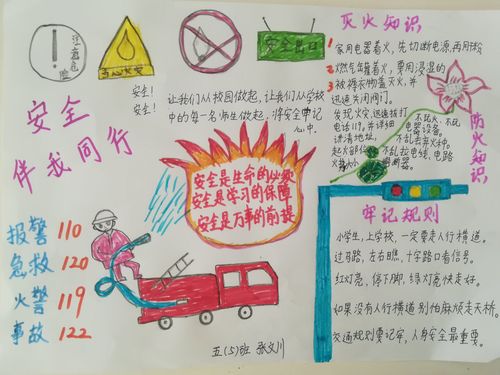 注意危险
当心火灾
安全出口
安全
伴我同行
安全!
安全!
让我们从校园做起,让我们从学校
中的每一名师生做起,将安全牢记
心中。
安全是生命的必须
安全是学习的保障
安全是万事的前提
报警 110
急救 120
火警 119
事故 122
五(5)班 张文川
灭火知识
1 家用电器着火,先切断电源,再用
2 燃气缶着火,要用浸湿的
3 被褥衣物盖灭火,并
迅速关闭阀门。
发现火灾,迅速拨打
电话119,并详细
讲清地址,
起火部位
火势大小
不玩火、不玩
电器设备。
不乱丢弃火种。
不乱拉电线、电路
防火知识
牢记规则
小学生,上学校,一定要走人行横道。
过马路,左右瞧,十字路口看信号。
红灯亮,停下脚,绿灯亮快走好。
如果没有人行横道别怕麻烦走天桥。
交通规则要记牢,人身安全最重要。